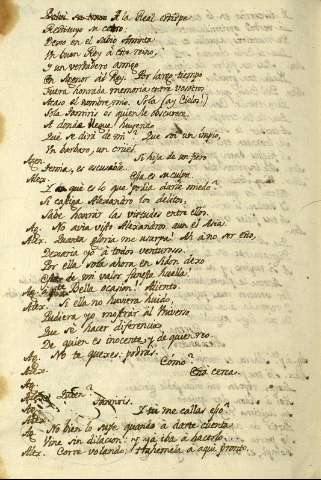 Bolví su trono à la Real estirpe
Restituyo su cetro.
Dexo en el sabio Aminta
Un buen Rey à este reino,
Y un verdadero amigo
En Agenor àl Rey. Por largo tiempo
Fuera honrada memoria entre vosotros
Acaso el nombre mio. Sola (ay Cielos!)
Sola Tamiris es quien le obscurece
A donde llegue huyendo
Què se dirà de mi? Que soi un impio,
Un barbaro, un cruel.
Agen. Si hija de un fiero
tema, es escusable.
Alex. Esa es su culpa.
I què es lo que podia darle miedo?
Si castiga Alexandro los delitos,
Sabe honrar las virtudes entre ellos.
Ag. No avia visto Alexandros aun el Asia
Alex. Quanta gloria me usurpa! Ah à no ser eso,
Dexaria yo à todos venturosos.
Por ella sola ahora en Sidon dexo
de mi valor funesta huella.
Ag. Bella ocasion! Aliento.
Alex. Si ella no huviera huido,
Pudiera yo mostrar al Universo
Que sè hacer diferencias
De quien es inocente, y de quien reo.
Ag. No te quexes: podrás.
Alex. Cómo?
Ag. Està cerca.
Alex. Quien?
Ag. Tamiris.
Alex. I tu me callas eso?
Ag. No bien lo supe quando à darte cuenta
Vine sin dilacion: ya iba à hacerlo.
Alex. Corre volando: Trahemela aqui pronto.